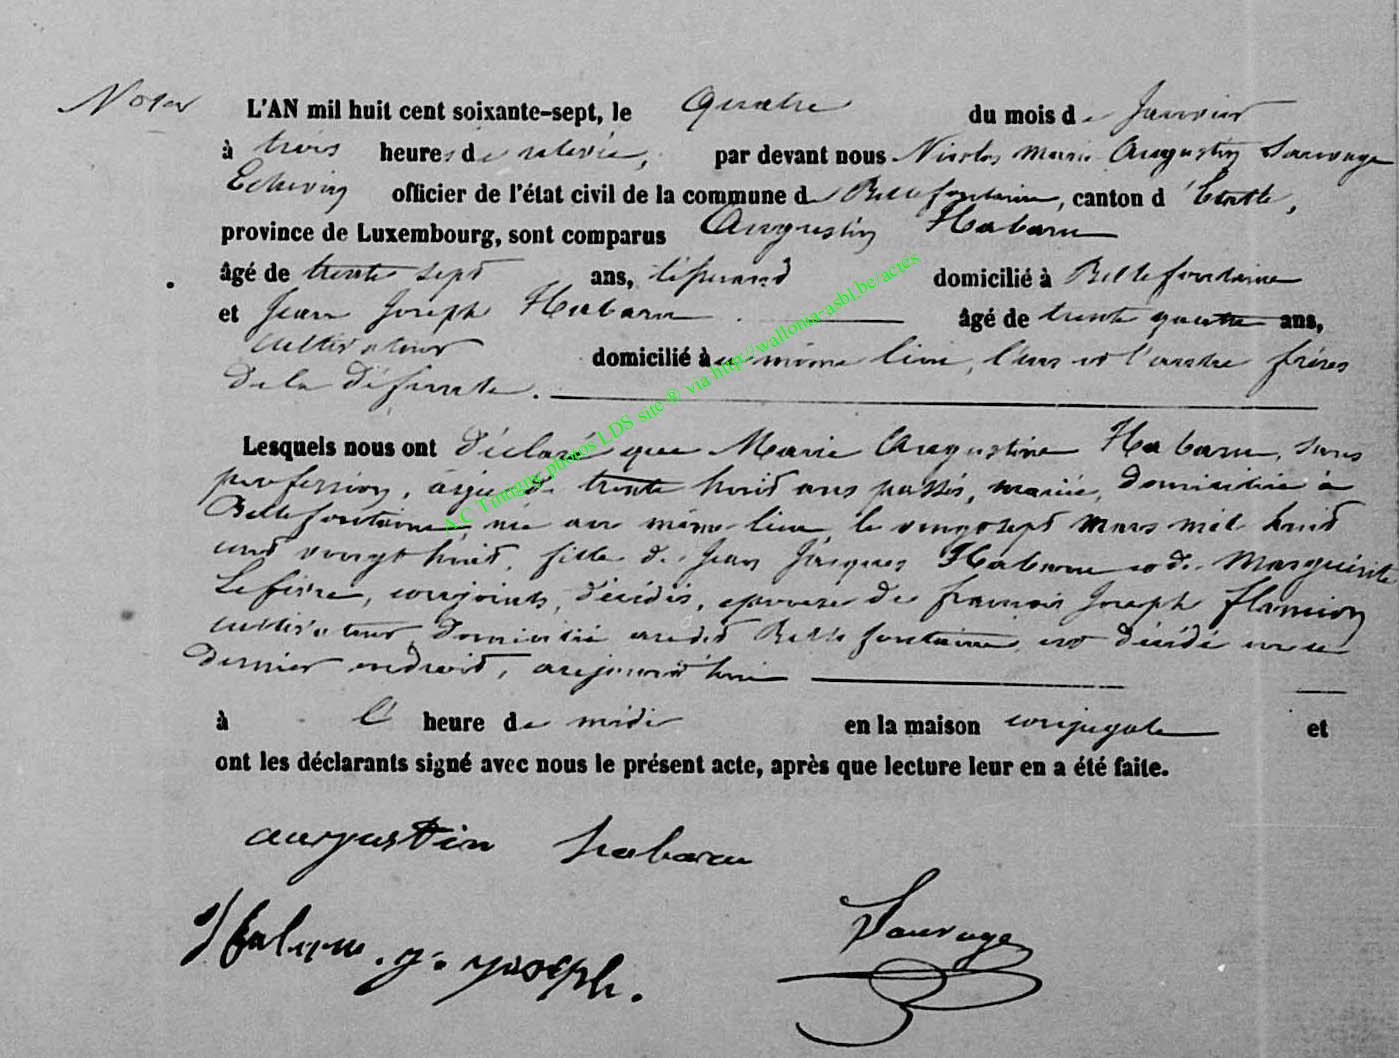 L'AN mil huit cent soixante-sept, le Quatre du mois de Janvier
à trois heures de relevée, par devant nous Nicolas Marie Augustin Sauvage
Echevin officier de l'état civil de la commune de Bellefontaine, canton d'Etalle,
province de Luxembourg, sont comparus Augustin Habaru
âgé de trente sept ans, domicilié à Bellefontaine
et Jean Joseph Habaru âgé de trente quatre ans,
cultivateur domicilié au même lieu, l'un et l'autre frères
de la défunte.
Lesquels nous ont déclaré que Marie Augustine Habaru, sans
profession, âgée de trente huit ans passés, mariée, domiciliée à
Bellefontaine, née au même lieu le vingt sept mars mil huit
cent vingt huit, fille de Jean Jacques Habaru et de Marguerite
Lefèvre, conjoints, décédés, épouse de françois Joseph flamion
cultivateur domicilié audit Bellefontaine est décédé en ce
dernier endroit, aujourd'hui
à l' heure de midi en la maison conjugale et
ont les déclarants signé avec nous le présent acte, après que lecture leur en a été faite.
augustin habaru
Habaru. j. joseph.
Sauvage
A.C Tintigny photos LDS site ® via http://wallonia-asbl.be/actes